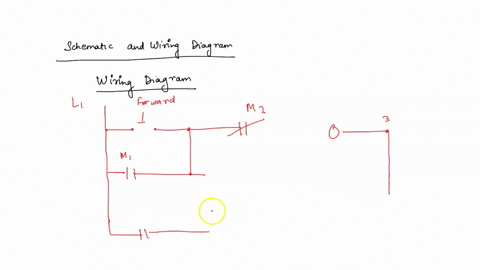 Schematic and Wiring Diagram
Wiring Diagram
L1
Forward
M2
3
M1